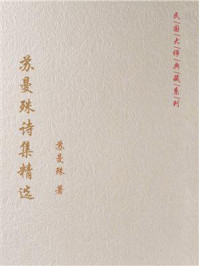 民国大师典藏系列
苏曼殊诗集精选
苏曼殊 著